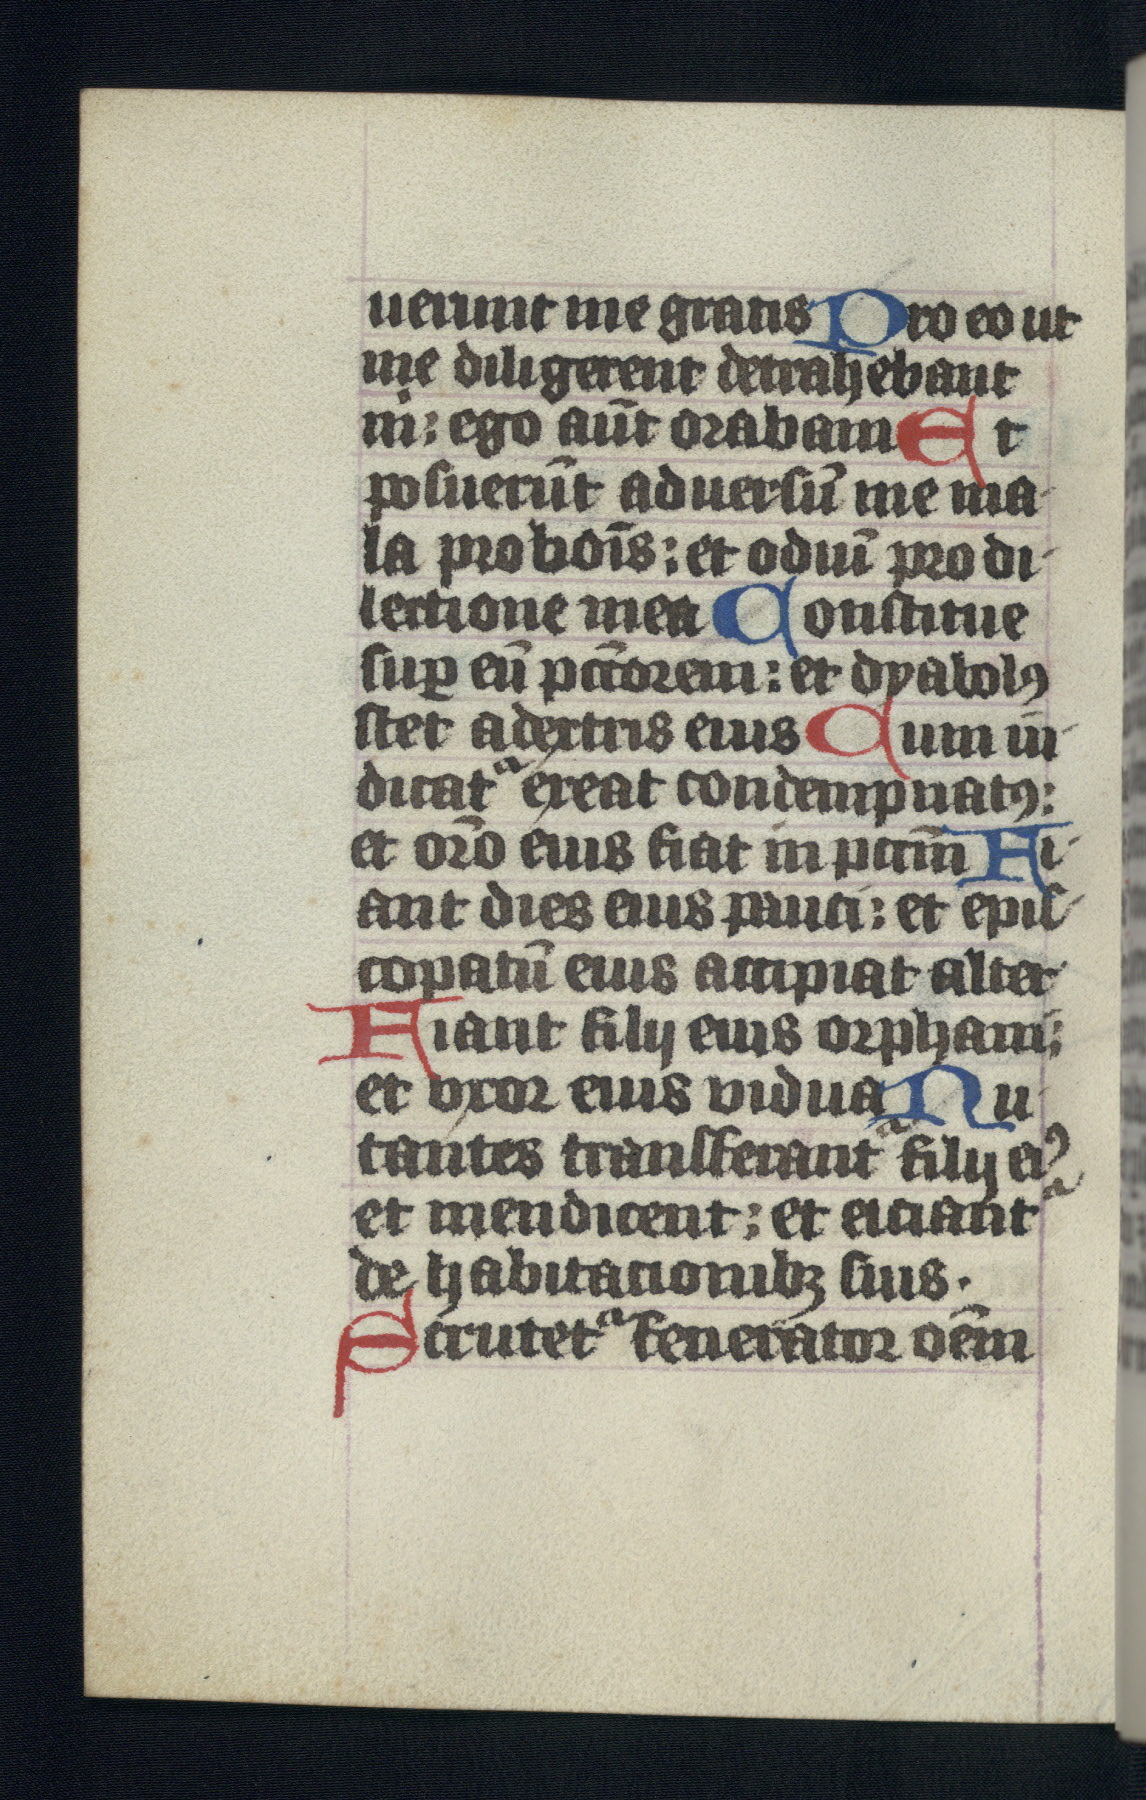 uerunt me gratis Pro eo ut
me diligerent detrahebant
m̊: ego aūt orabam Et
posuerūt aduersū me ma-
la pro boīs: et odiū pro di-
lectione mea Constitue
suꝑ eū pcc̄orem: et dyabolꝰ
stet adextris eius Cum iu-
dicatᷓ exeat condempnatꝰ:
et or̄o eius fiat in pcc̄m Fi-
ant dies eius pauci: et epis-
copatū eius accipiat alter
Fiant filij eius orphani:
et vxor eius vidua Nu-
tantes transferantᷓ filij eiꝰ
et mendicent: et eiciantᷓ
de habitacionibꝫ suis.
Scrutetᷓ fenerator oēm